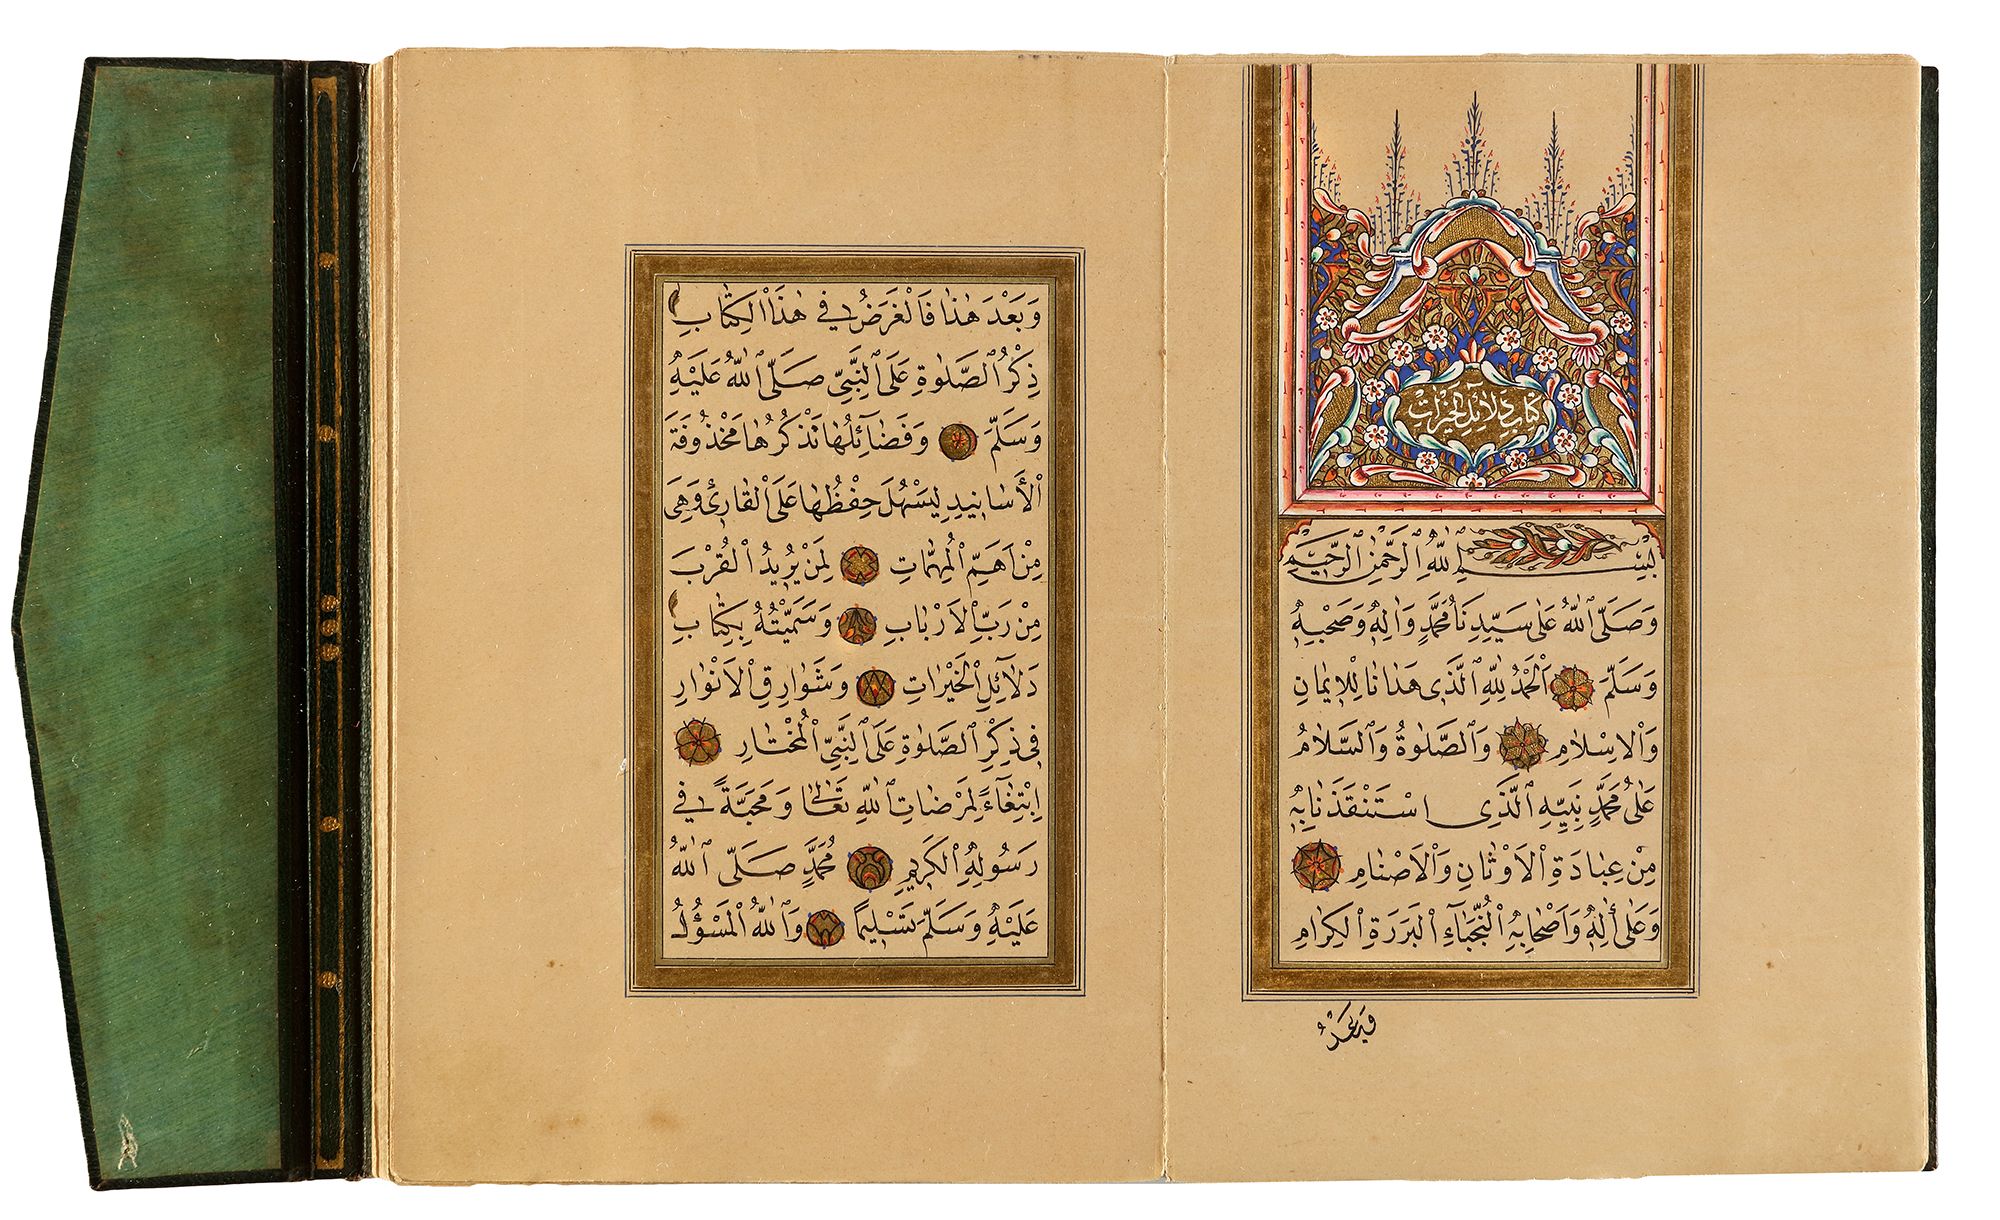 كتاب دلائل الخيرات
بِسْمِ اللهِ الرَّحْمٰنِ الرَّحِيمِ
وَصَلَّى اللهُ عَلٰى سَيِّدِنَا مُحَمَّدٍ وَاٰلِهِ وَصَحْبِهِ
وَسَلَّمَ اَلْحَمْدُ لِلّٰهِ الَّذِى هَدَانَا لِلْاِيمَانِ
وَالْاِسْلَامِ وَالصَّلٰوةُ وَالسَّلَامُ
عَلٰى مُحَمَّدٍ نَبِيِّهِ الَّذِى اسْتَنْقَذَنَا بِهِ
مِنْ عِبَادَةِ الْاَوْثَانِ وَالْاَصْنَامِ
وَعَلٰى اٰلِهِ وَاَصْحَابِهِ النُّجَبَآءِ الْبَرَرَةِ الْكِرَامِ
وَبَعْدُ
وَبَعْدَ هٰذَا فَالْغَرَضُ فِي هٰذَا الْكِتَابِ
ذِكْرُ الصَّلٰوةِ عَلَى النَّبِيِّ صَلَّى اللهُ عَلَيْهِ
وَسَلَّمَ وَفَضَآئِلُهَا نَذْكُرُهَا مَحْذُوفَةَ
الْأَسَانِيدِ لِيَسْهُلَ حِفْظُهَا عَلَى الْقَارِئِ وَهِىَ
مِنْ اَهَمِّ الْمُهِمَّاتِ لِمَنْ يُرِيدُ الْقُرْبَ
مِنْ رَبِّ الْاَرْبَابِ وَسَمَّيْتُهُ بِكِتَابِ
دَلَآئِلِ الْخَيْرَاتِ وَشَوَارِقِ الْاَنْوَارِ
فِى ذِكْرِ الصَّلٰوةِ عَلَى النَّبِيِّ الْمُخْتَارِ
اِبْتِغَآءً لِمَرْضَاتِ اللهِ تَعَالٰى وَمَحَبَّةً فِي
رَسُولِهِ الْكَرِيمِ مُحَمَّدٍ صَلَّى اللهُ
عَلَيْهِ وَسَلَّمَ تَسْلِيمًا وَاللهُ الْمَسْؤُلُ